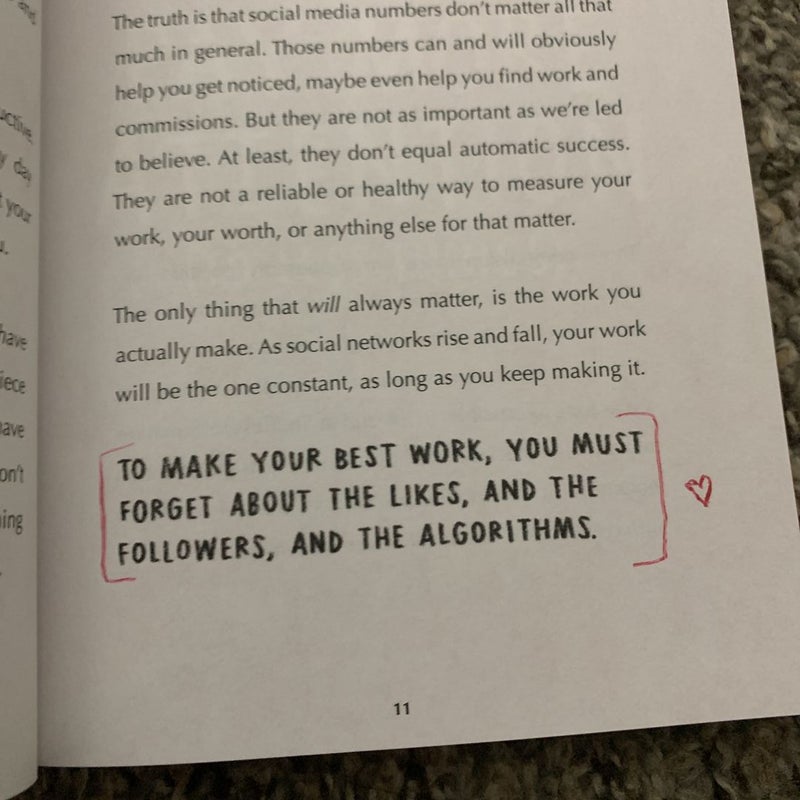 The truth is that social media numbers don't matter all that
much in general. Those numbers can and will obviously
help you get noticed, maybe even help you find work and
commissions. But they are not as important as we're led
to believe. At least, they don't equal automatic success.
They are not a reliable or healthy way to measure your
work, your worth, or anything else for that matter.
The only thing that will always matter, is the work you
actually make. As social networks rise and fall, your work
will be the one constant, as long as you keep making it.
TO MAKE YOUR BEST WORK, YOU MUST
FORGET ABOUT THE LIKES, AND THE
FOLLOWERS, AND THE ALGORITHMS.
11